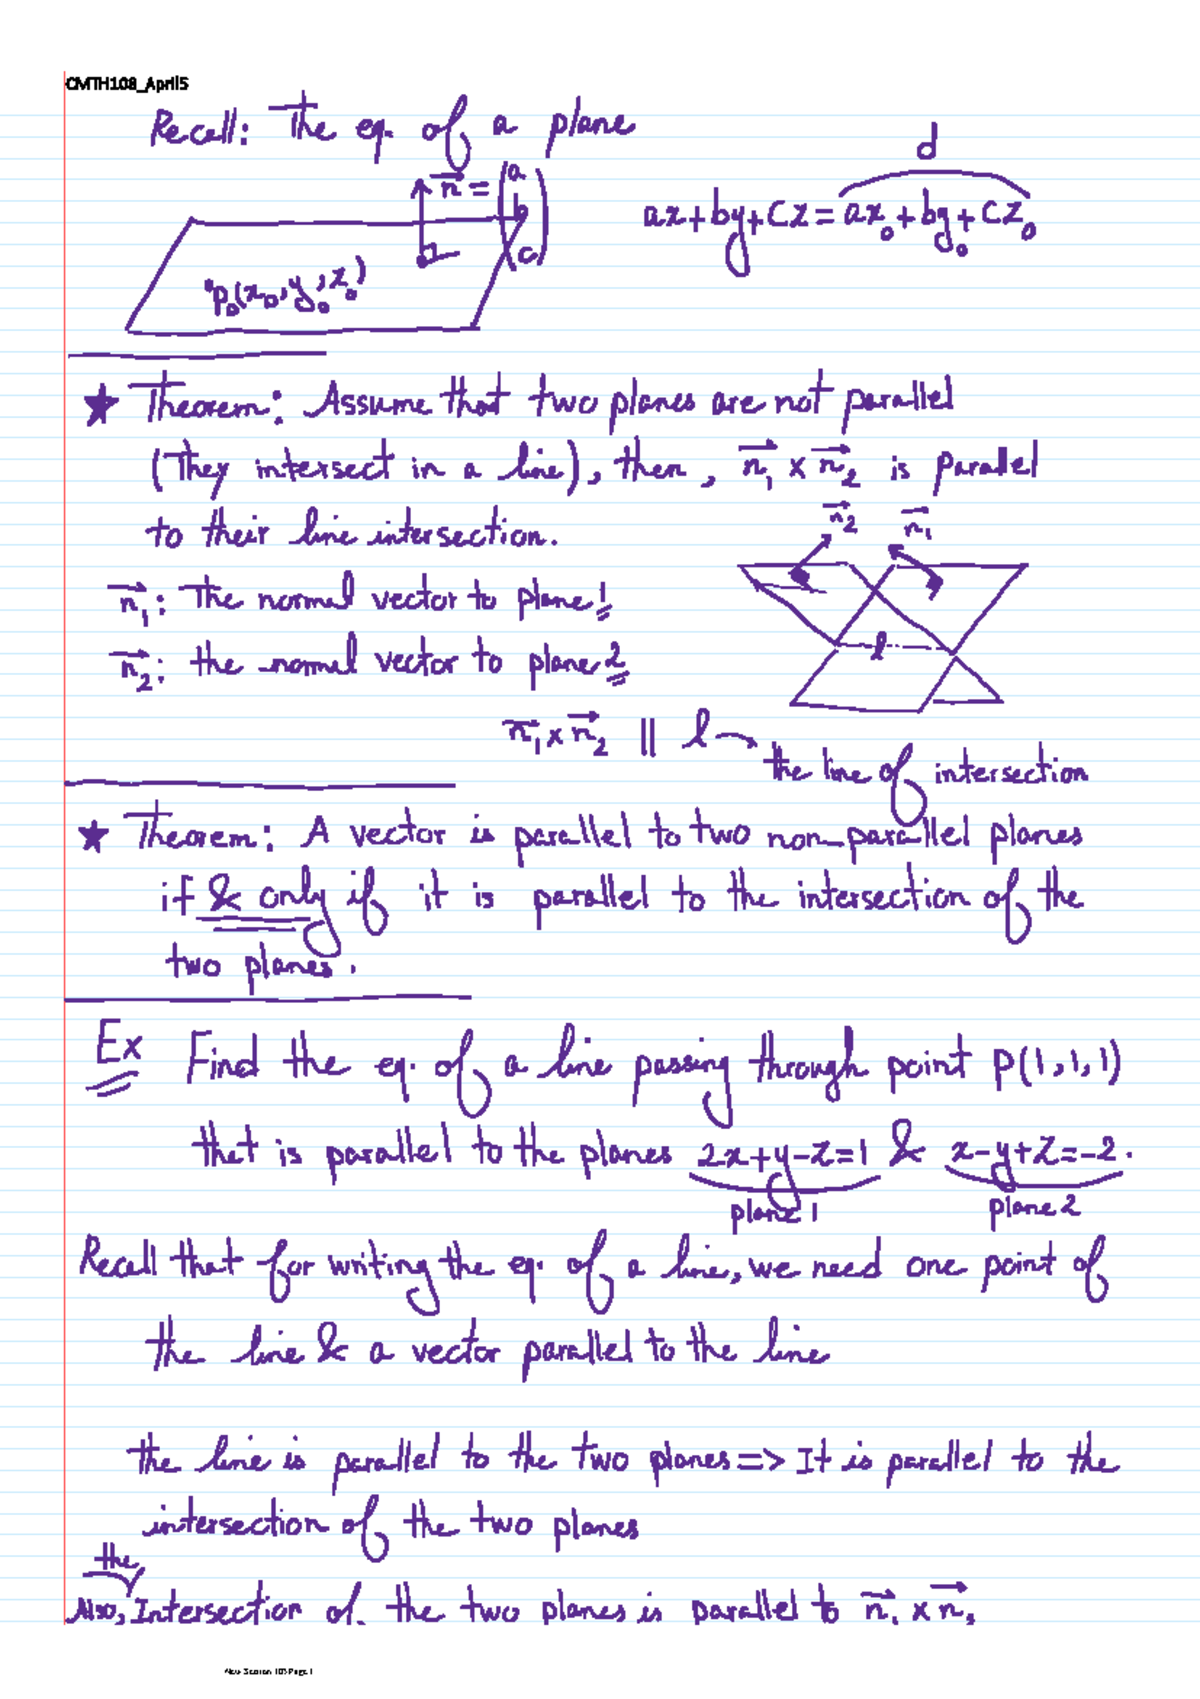 CMTH108_April5
Recall: The eq. of a plane
d
n⃗ = (a b c)
ax+by+cz = ax₀+by₀+cz₀
P₀(x₀,y₀,z₀)
★ Theorem: Assume that two planes are not parallel
(They intersect in a line), then, n⃗₁ × n⃗₂ is parallel
to their line intersection.
n⃗₂ n⃗₁
n⃗₁: The normal vector to plane 1
l
n⃗₂: the normal vector to plane 2
n⃗₁ × n⃗₂ || l → the line of intersection
★ Theorem: A vector is parallel to two non-parallel planes
if & only if it is parallel to the intersection of the
two planes.
Ex Find the eq. of a line passing through point P(1,1,1)
that is parallel to the planes 2x+y-z=1 & x-y+z=-2.
plane 1 plane 2
Recall that for writing the eq. of a line, we need one point of
the line & a vector parallel to the line
the line is parallel to the two planes => It is parallel to the
intersection of the two planes
Also, the Intersection of the two planes is parallel to n⃗₁ × n⃗₂
New Section 103 Page 1